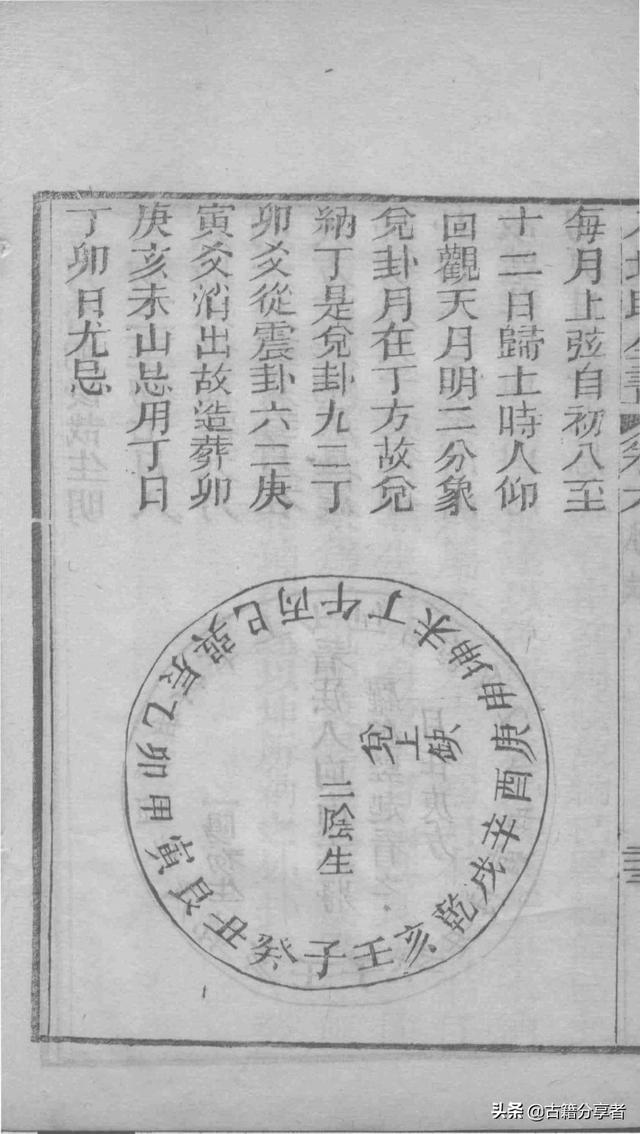 每月上弦自初八至
十二日歸土時人仰
回觀天月明二分象
兌卦月在丁方故兌
納丁是兌卦九二丁
卯爻從震卦六二庚
寅爻滔出故造葬卯
庚亥未山忌用丁日
丁卯日尤忌
子癸丑艮寅甲卯乙辰巽巳丙午丁未坤申庚酉辛戌乾亥壬
兌上缺
二陰生
头条 @古籍分享者